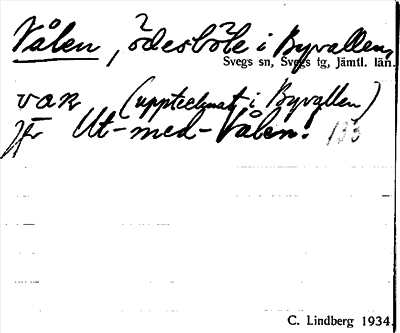 Vålen, ödesböle i Byvallen,
Svegs sn, Svegs tg, Jämtl. län.
(upptecknat i Byvallen)
jfr Ut-med-Vålen! 133
C. Lindberg 1934.